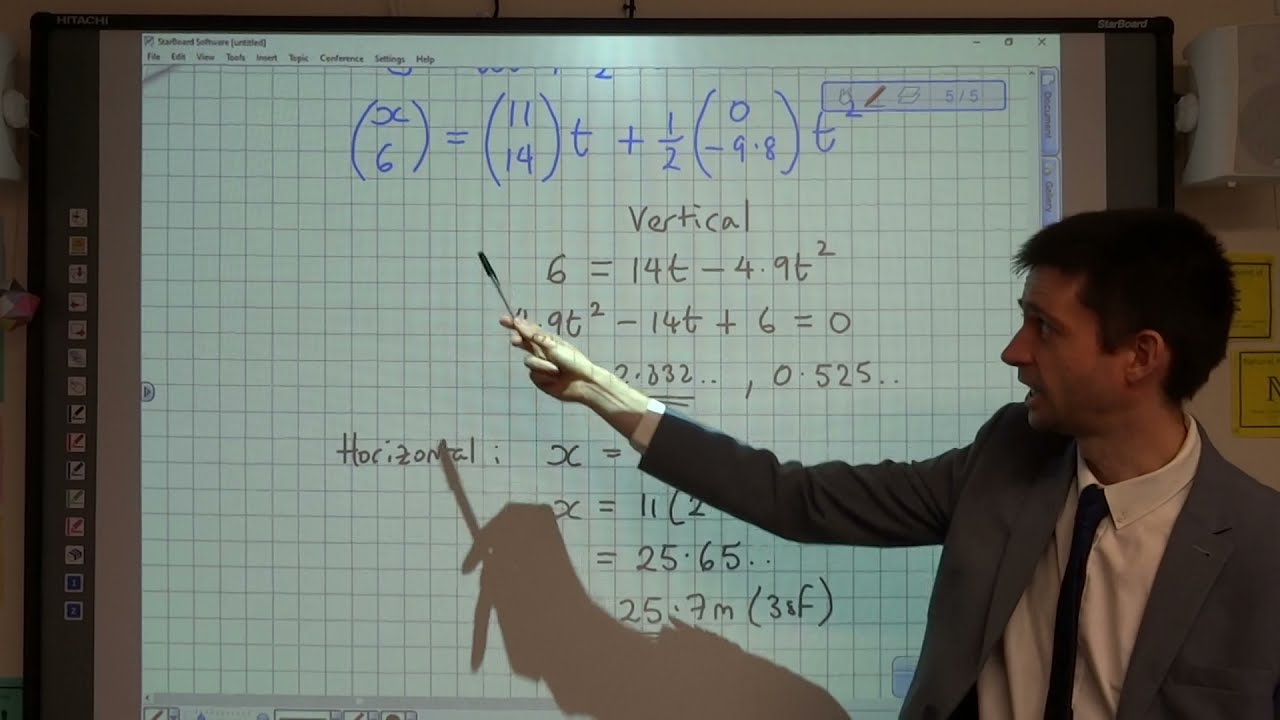 HITACHI
StarBoard
StarBoard Software [untitled]
File Edit View Tools Insert Topic Conference Settings Help
5 / 5
Document
Gallery
(x 6) = (11 14) t + 1/2 (0 -9.8) t²
Vertical
6 = 14t - 4.9t²
4.9t² - 14t + 6 = 0
2.332.. , 0.525..
Horizontal : x =
x = 11(2
= 25.65..
25.7m (3sf)
1
2